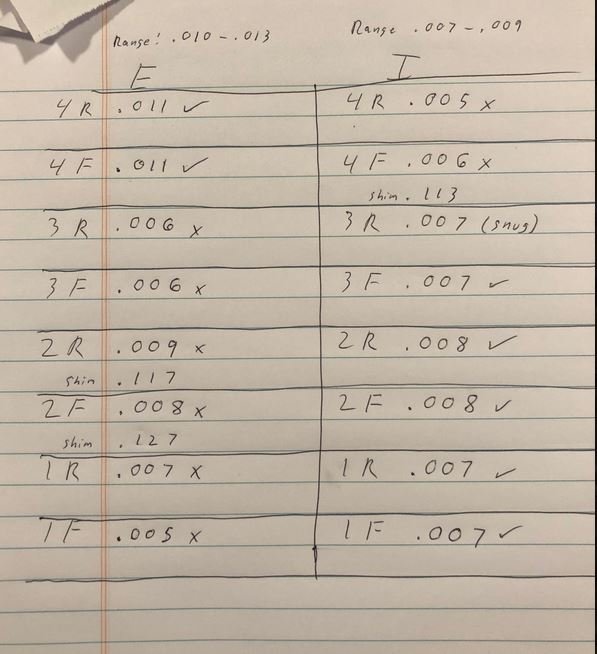 Range: .010 - .013 Range .007 - .009
E I
4 R .011 ✓ 4 R .005 x
4 F .011 ✓ 4 F .006 x
shim .113
3 R .006 x 3 R .007 (snug)
3 F .006 x 3 F .007 ✓
2 R .009 x 2 R .008 ✓
shim .117
2 F .008 x 2 F .008 ✓
shim .127
1 R .007 x 1 R .007 ✓
1 F .005 x 1 F .007 ✓